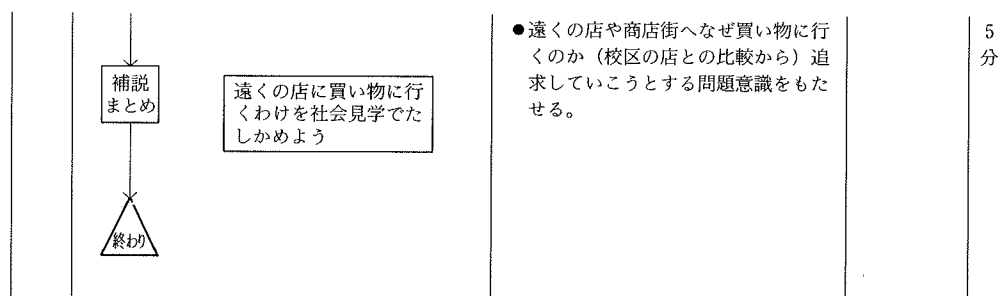 補説
まとめ
終わり
遠くの店に買い物に行
くわけを社会見学でた
しかめよう
●遠くの店や商店街へなぜ買い物に行
くのか（校区の店との比較から）追
求していこうとする問題意識をもた
せる。
5
分